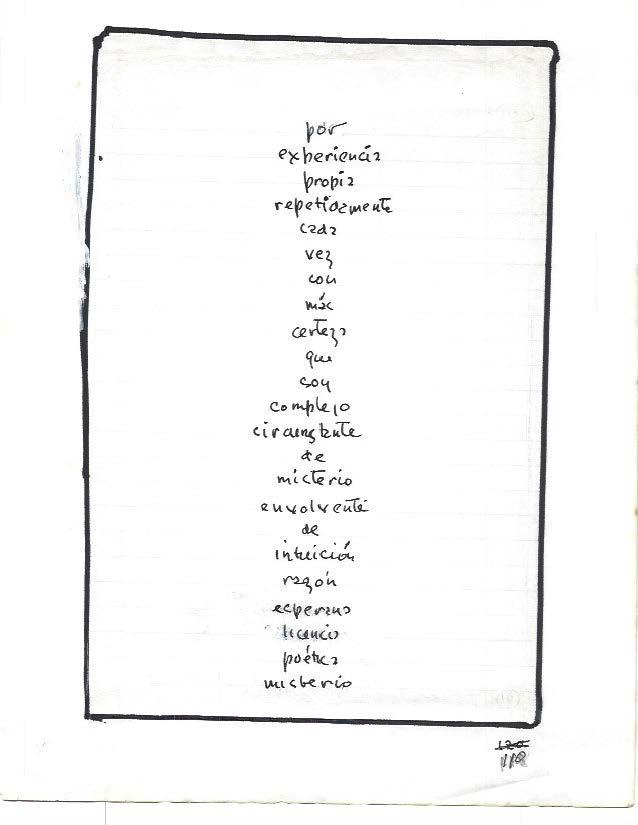 por
experiencia
propia
repetidamente
cada
vez
con
más
certeza
que
soy
complejo
circunstante
de
misterio
envolvente
de
intuición
razón
esperano
licencia
poética
misterio
120